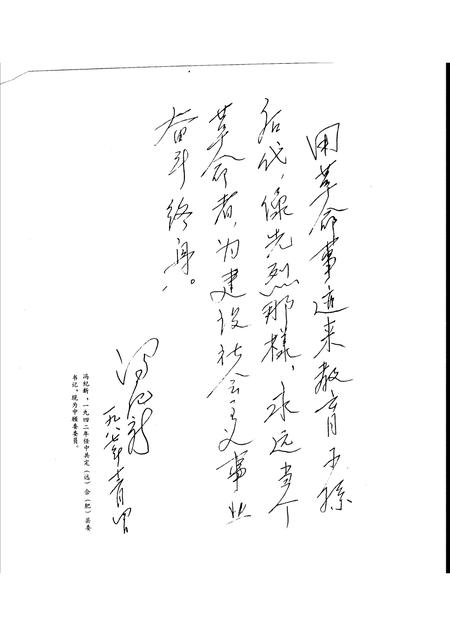 用革命事迹来教育子孫
后代，像先烈那樣，永远当个
革命者，为建设社会主义事业
奋斗终身。
冯纪新
一九八七年
冯纪新，一九四二年任中共定（远）合（肥）县委
书记，现为中顾委委员。